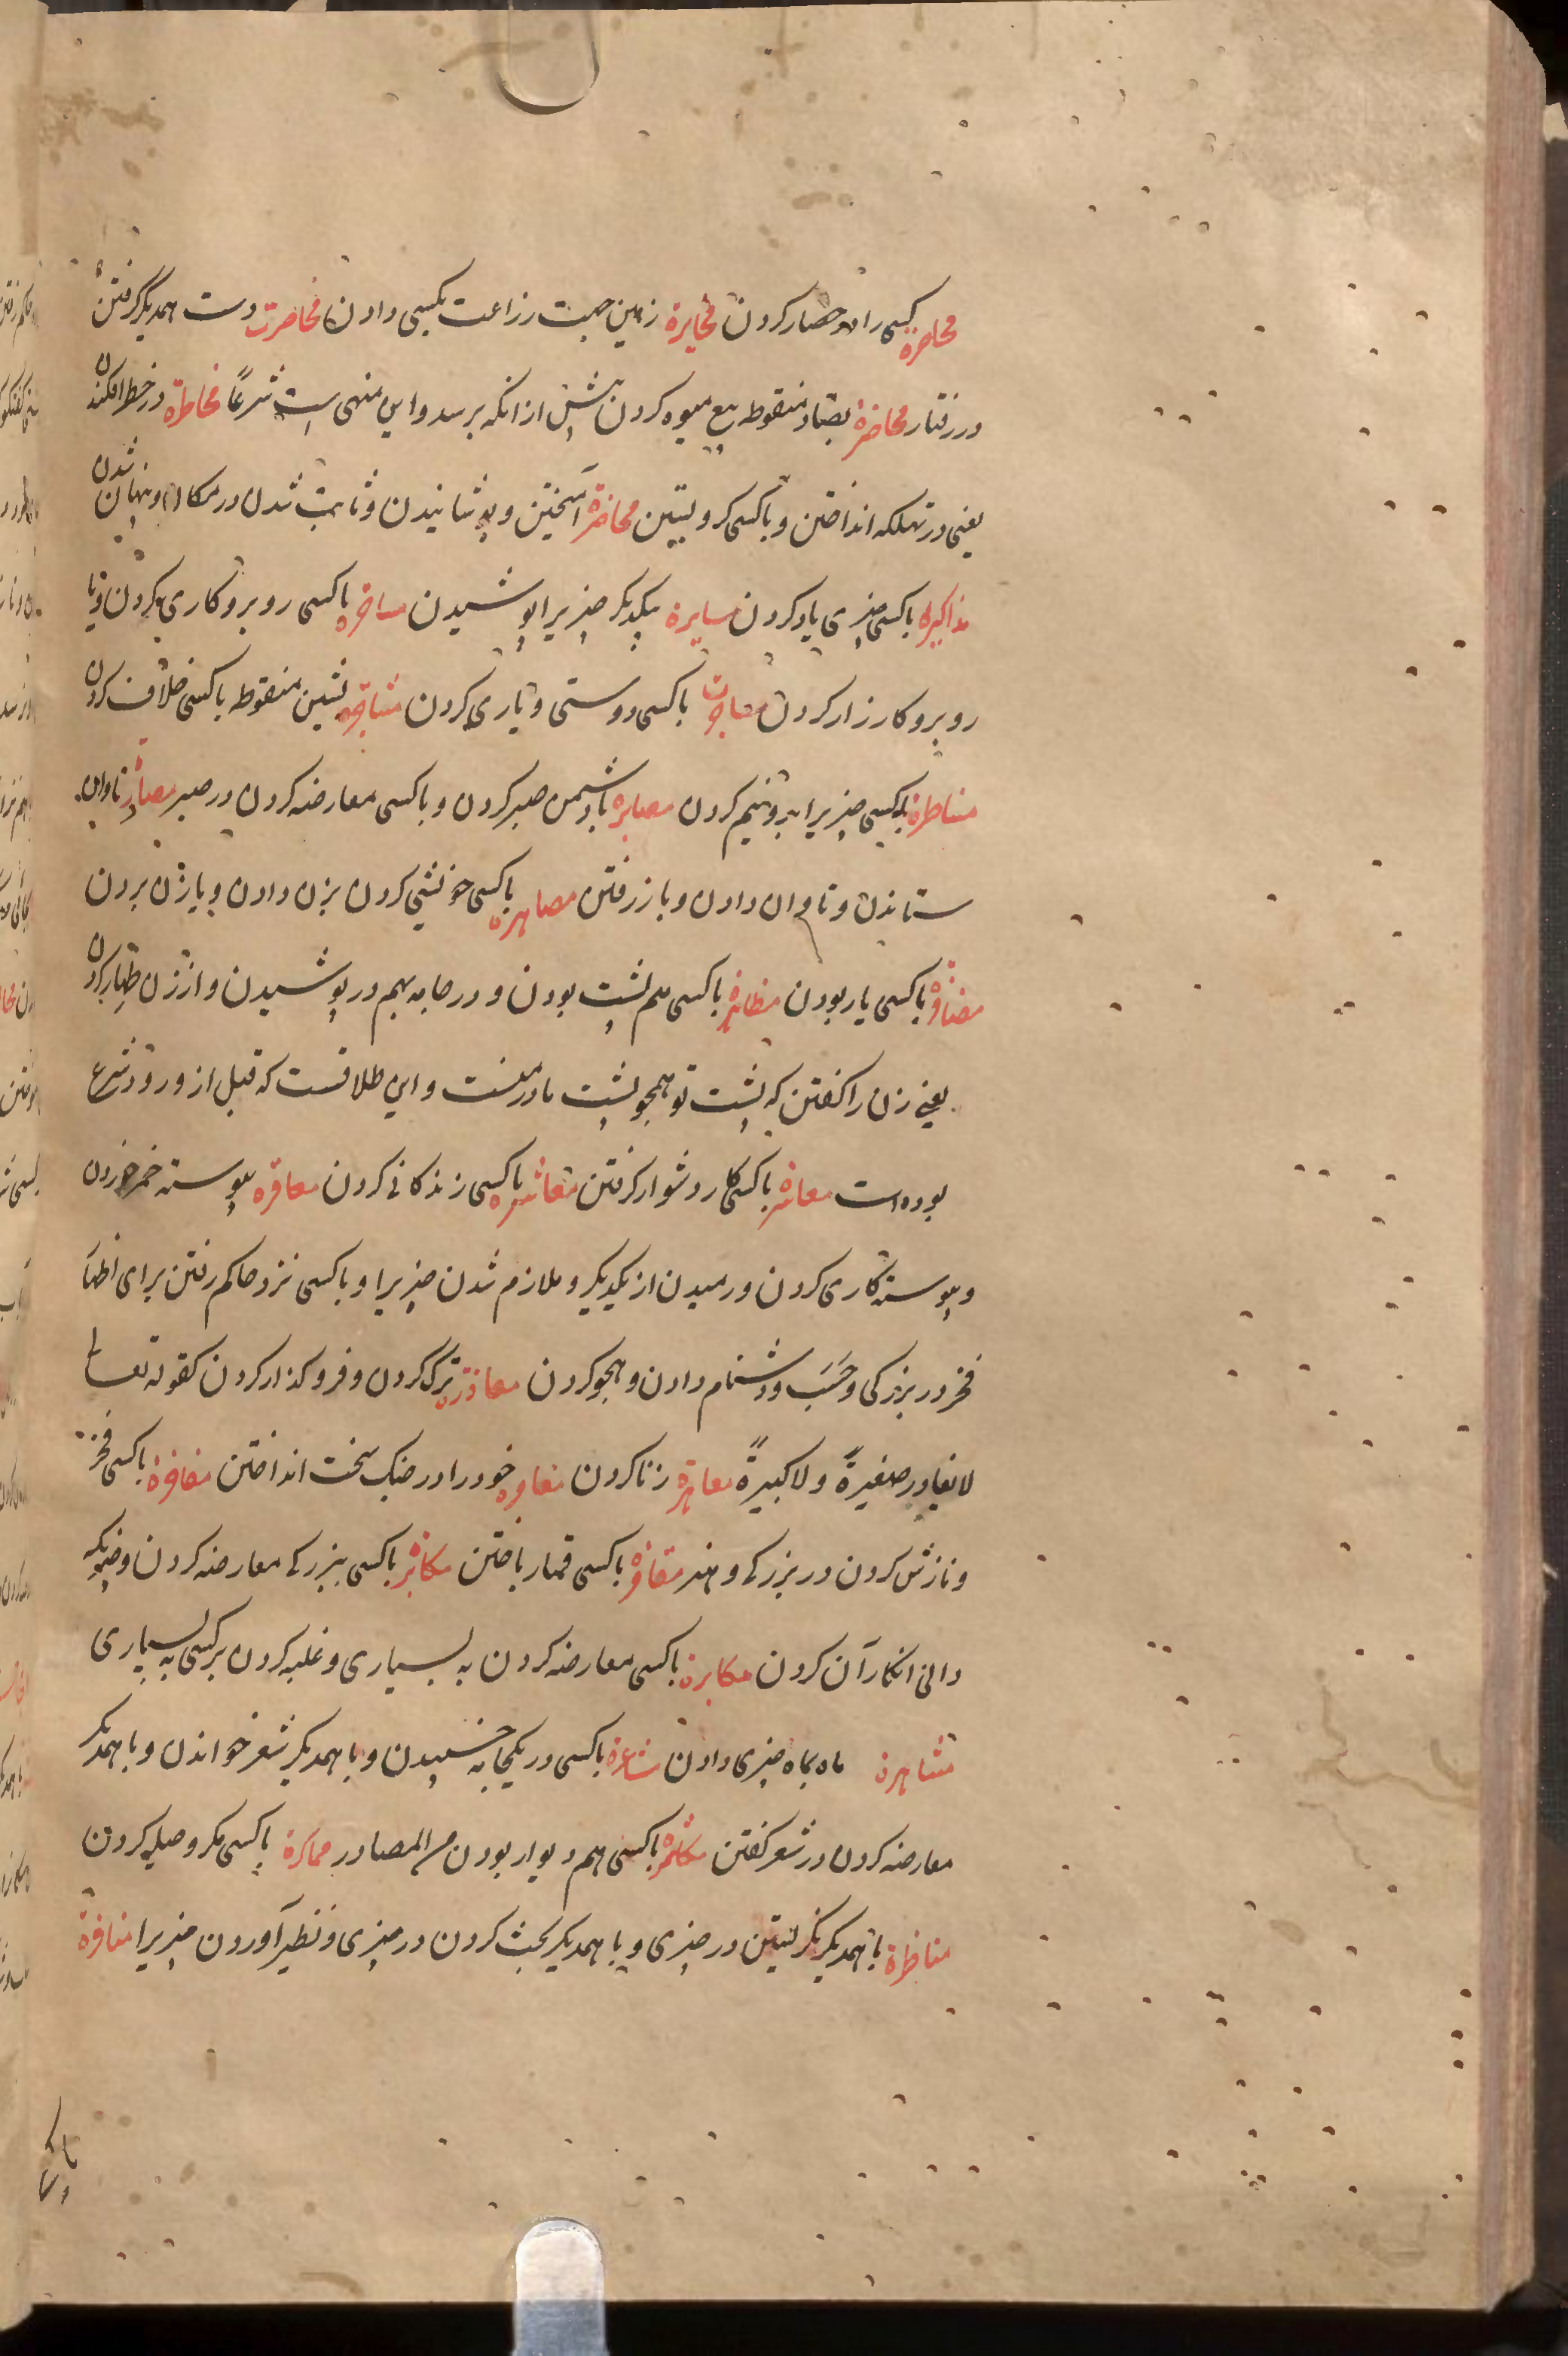 محاصرة کسی را در حصار کردن مخابرة زمین جهت زراعت بکسی دادن مخاصرت دست همدیگر گرفتن
در رفتار مخاضرة بضاد منقوطه بیع میوه کردن پیش از انکه برسد و این منهی است شرعًا مخاطرة در خطر افکندن
یعنی در تهلکه انداختن و با کسی کرو بستن مخامرة آمیختن و پوشانیدن و ثابت شدن در مکان و پنهان شدن
مذاکره با کسی چیزی یاد کردن مسایرة یکدیکر چیزیرا پوشیدن با کسی رو برو کاری کردن و با
رو برو کارزار کردن با کسی دوستی و یاری کردن مشاجره بشین منقوطه با کسی خلاف کردن
مشاطرة با کسی چیزیرا بدو نیم کردن مصابره با دشمن صبر کردن و با کسی معارضه کردن در صبر مصادرة تاوان
ستاندن و تاوان دادن و باز رفتن مصاهره با کسی خویشی کردن بزن دادن و یا زن بردن
مضافرة با کسی یار بودن مظاهرة با کسی هم پشت بودن و در جامه بهم در پوشیدن و از زن ظهار کردن
یعنی زن را کفتن که پشت تو همچو پشت مادر منست و این طلاقست که قبل از ورود شرع
بوده است معاسرة با کسی کار دشوار کرفتن معاشره با کسی زندکانی کردن معاقره پیوسته خمر خوردن
و پیوسته کاری کردن و رمیدن از یکدیکر و ملازم شدن چیزیرا و با کسی نزد حاکم رفتن برای اظهار
فخر در بزرکی و حَسَب و دشنام دادن و هجو کردن ترک کردن و فرو کذار کردن کقوله تعالی
لا یغادر صغیرةً ولا کبیرةً معاهرة زنا کردن مغاوره خود را در جنک سخت انداختن مفاخرة با کسی فخر
و نازش کردن در بزرکی و هنر مقامرة با کسی قمار باختن مکابرة با کسی ببزرکی معارضه کردن و چیزیکه
دانی انکار آن کردن مکاثرة با کسی معارضه کردن به بسیاری و غلبه کردن بر کسی به بسیاری
مشاهرة ماه بماه چیزی دادن مشاعرة با کسی در یکجامه خسپیدن و با همدیکر شعر خواندن و با همدیکر
معارضه کردن در شعر کفتن با کسی هم دیوار بودن من المصادر مماکرة با کسی مکر و حیله کردن
مناظرة با همدیکر نکریستن در چیزی و با همدیکر بحث کردن در چیزی و نظیر آوردن چیزیرا منافرة